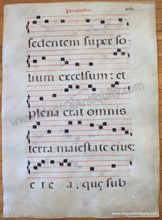 sedentem super so-
lium excelsum: et
plena erat omnis
terra maiestate eius:
e t e a, quę sub